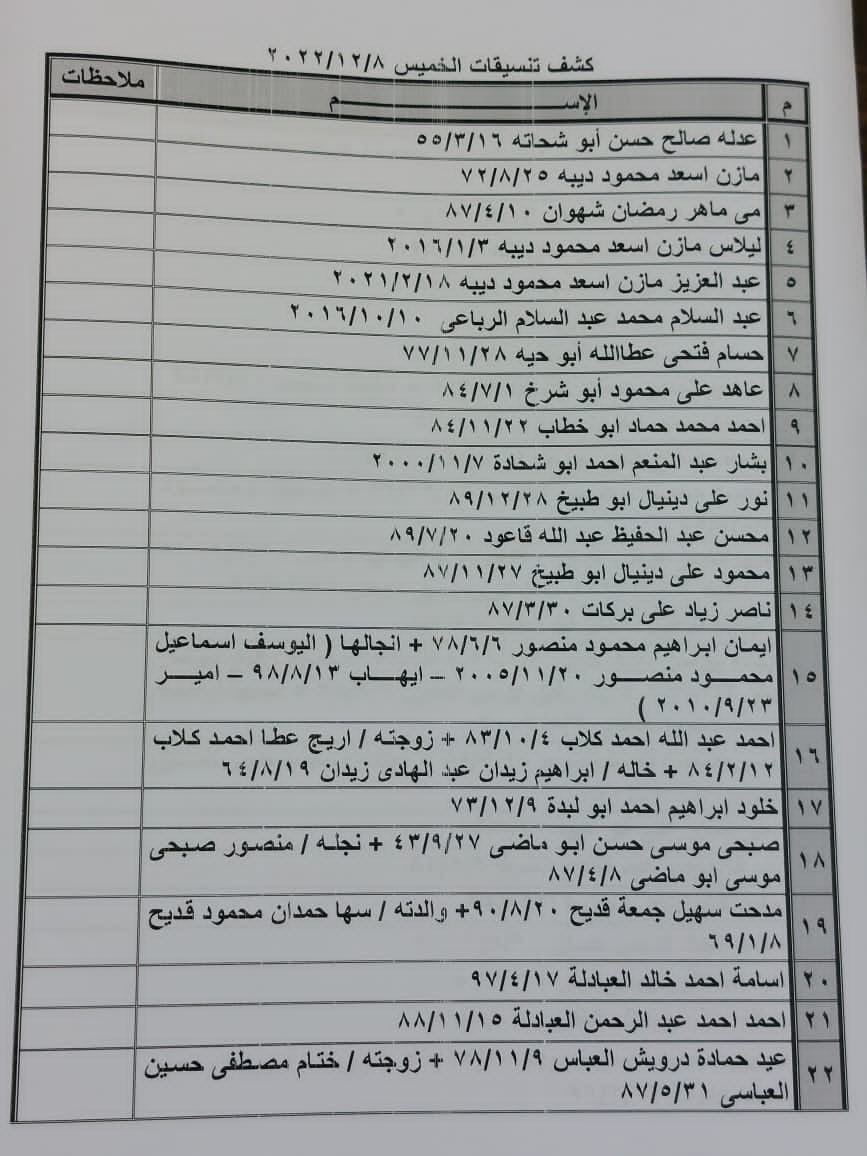 كشف تنسيقات الخميس ٢٠٢٢/١٢/٨
م الإســـم ملاحظات
١ عدله صالح حسن أبو شحاته ٥٥/٣/١٦
٢ مازن اسعد محمود ديبه ٧٢/٨/٢٥
٣ مى ماهر رمضان شهوان ٨٧/٤/١٠
٤ ليلاس مازن اسعد محمود ديبه ٢٠١٦/١/٣
٥ عبد العزيز مازن اسعد محمود ديبه ٢٠٢١/٢/١٨
٦ عبد السلام محمد عبد السلام الرباعى ٢٠١٦/١٠/١٠
٧ حسام فتحى عطاالله أبو حيه ٧٧/١١/٢٨
٨ عاهد على محمود أبو شرخ ٨٤/٧/١
٩ احمد محمد حماد ابو خطاب ٨٤/١١/٢٢
١٠ بشار عبد المنعم احمد ابو شحادة ٢٠٠٠/١١/٧
١١ نور على دينيال ابو طبيخ ٨٩/١٢/٢٨
١٢ محسن عبد الحفيظ عبد الله قاعود ٨٩/٧/٢٠
١٣ محمود على دينيال ابو طبيخ ٨٧/١١/٢٧
١٤ ناصر زياد على بركات ٨٧/٣/٣٠
١٥ ايمان ابراهيم محمود منصور ٧٨/٦/٦ + انجالها ( اليوسف اسماعيل
محمـــود منصـــور ٢٠٠٥/١١/٢٠ – ايهـــاب ٩٨/٨/١٣ – اميـــر
٢٠١٠/٩/٢٣ )
١٦ احمد عبد الله احمد كلاب ٨٣/١٠/٤ + زوجته / اريج عطا احمد كلاب
٨٤/٢/١٢ + خاله / ابراهيم زيدان عبد الهادى زيدان ٦٤/٨/١٩
١٧ خلود ابراهيم احمد ابو لبدة ٧٣/١٢/٩
١٨ صبحى موسى حسن ابو ماضى ٤٣/٩/٢٧ + نجله / منصور صبحى
موسى ابو ماضى ٨٧/٤/٨
١٩ مدحت سهيل جمعة قديح ٩٠/٨/٢٠+ والدته / سها حمدان محمود قديح
٦٩/١/٨
٢٠ اسامة احمد خالد العبادلة ٩٧/٤/١٧
٢١ احمد احمد عبد الرحمن العبادلة ٨٨/١١/١٥
٢٢ عيد حمادة درويش العباس ٧٨/١١/٩ + زوجته / ختام مصطفى حسين
العباسى ٨٧/٥/٣١